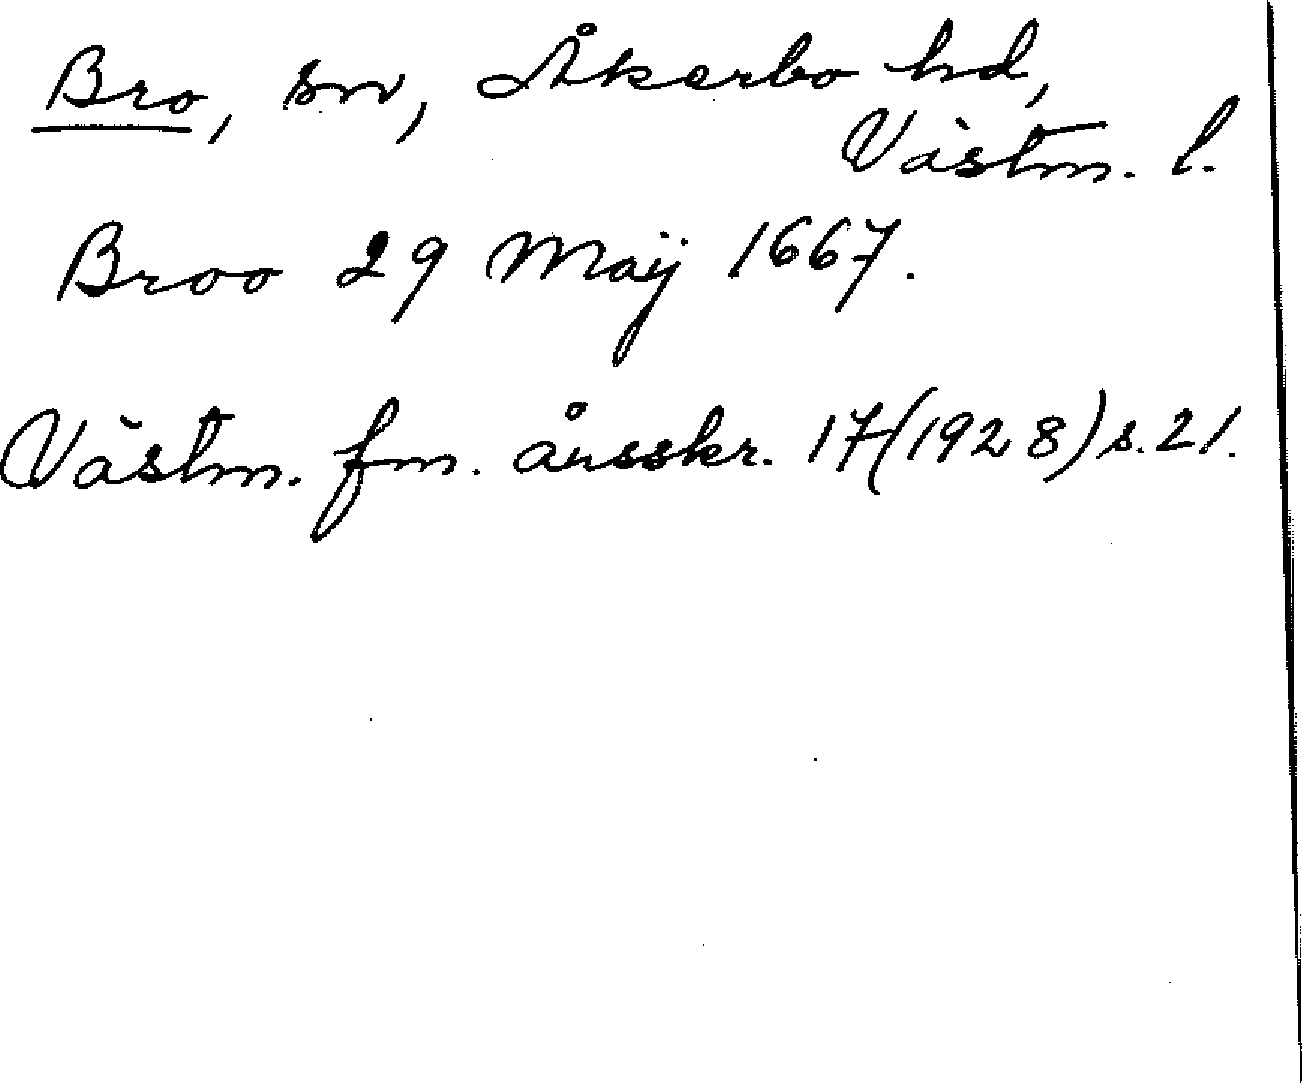 Bro, sn, Åkerbo hd,
Västm. l.
Broo 29 Maÿ 1667.
Västm. fm. årsskr. 17(1928) s. 21.